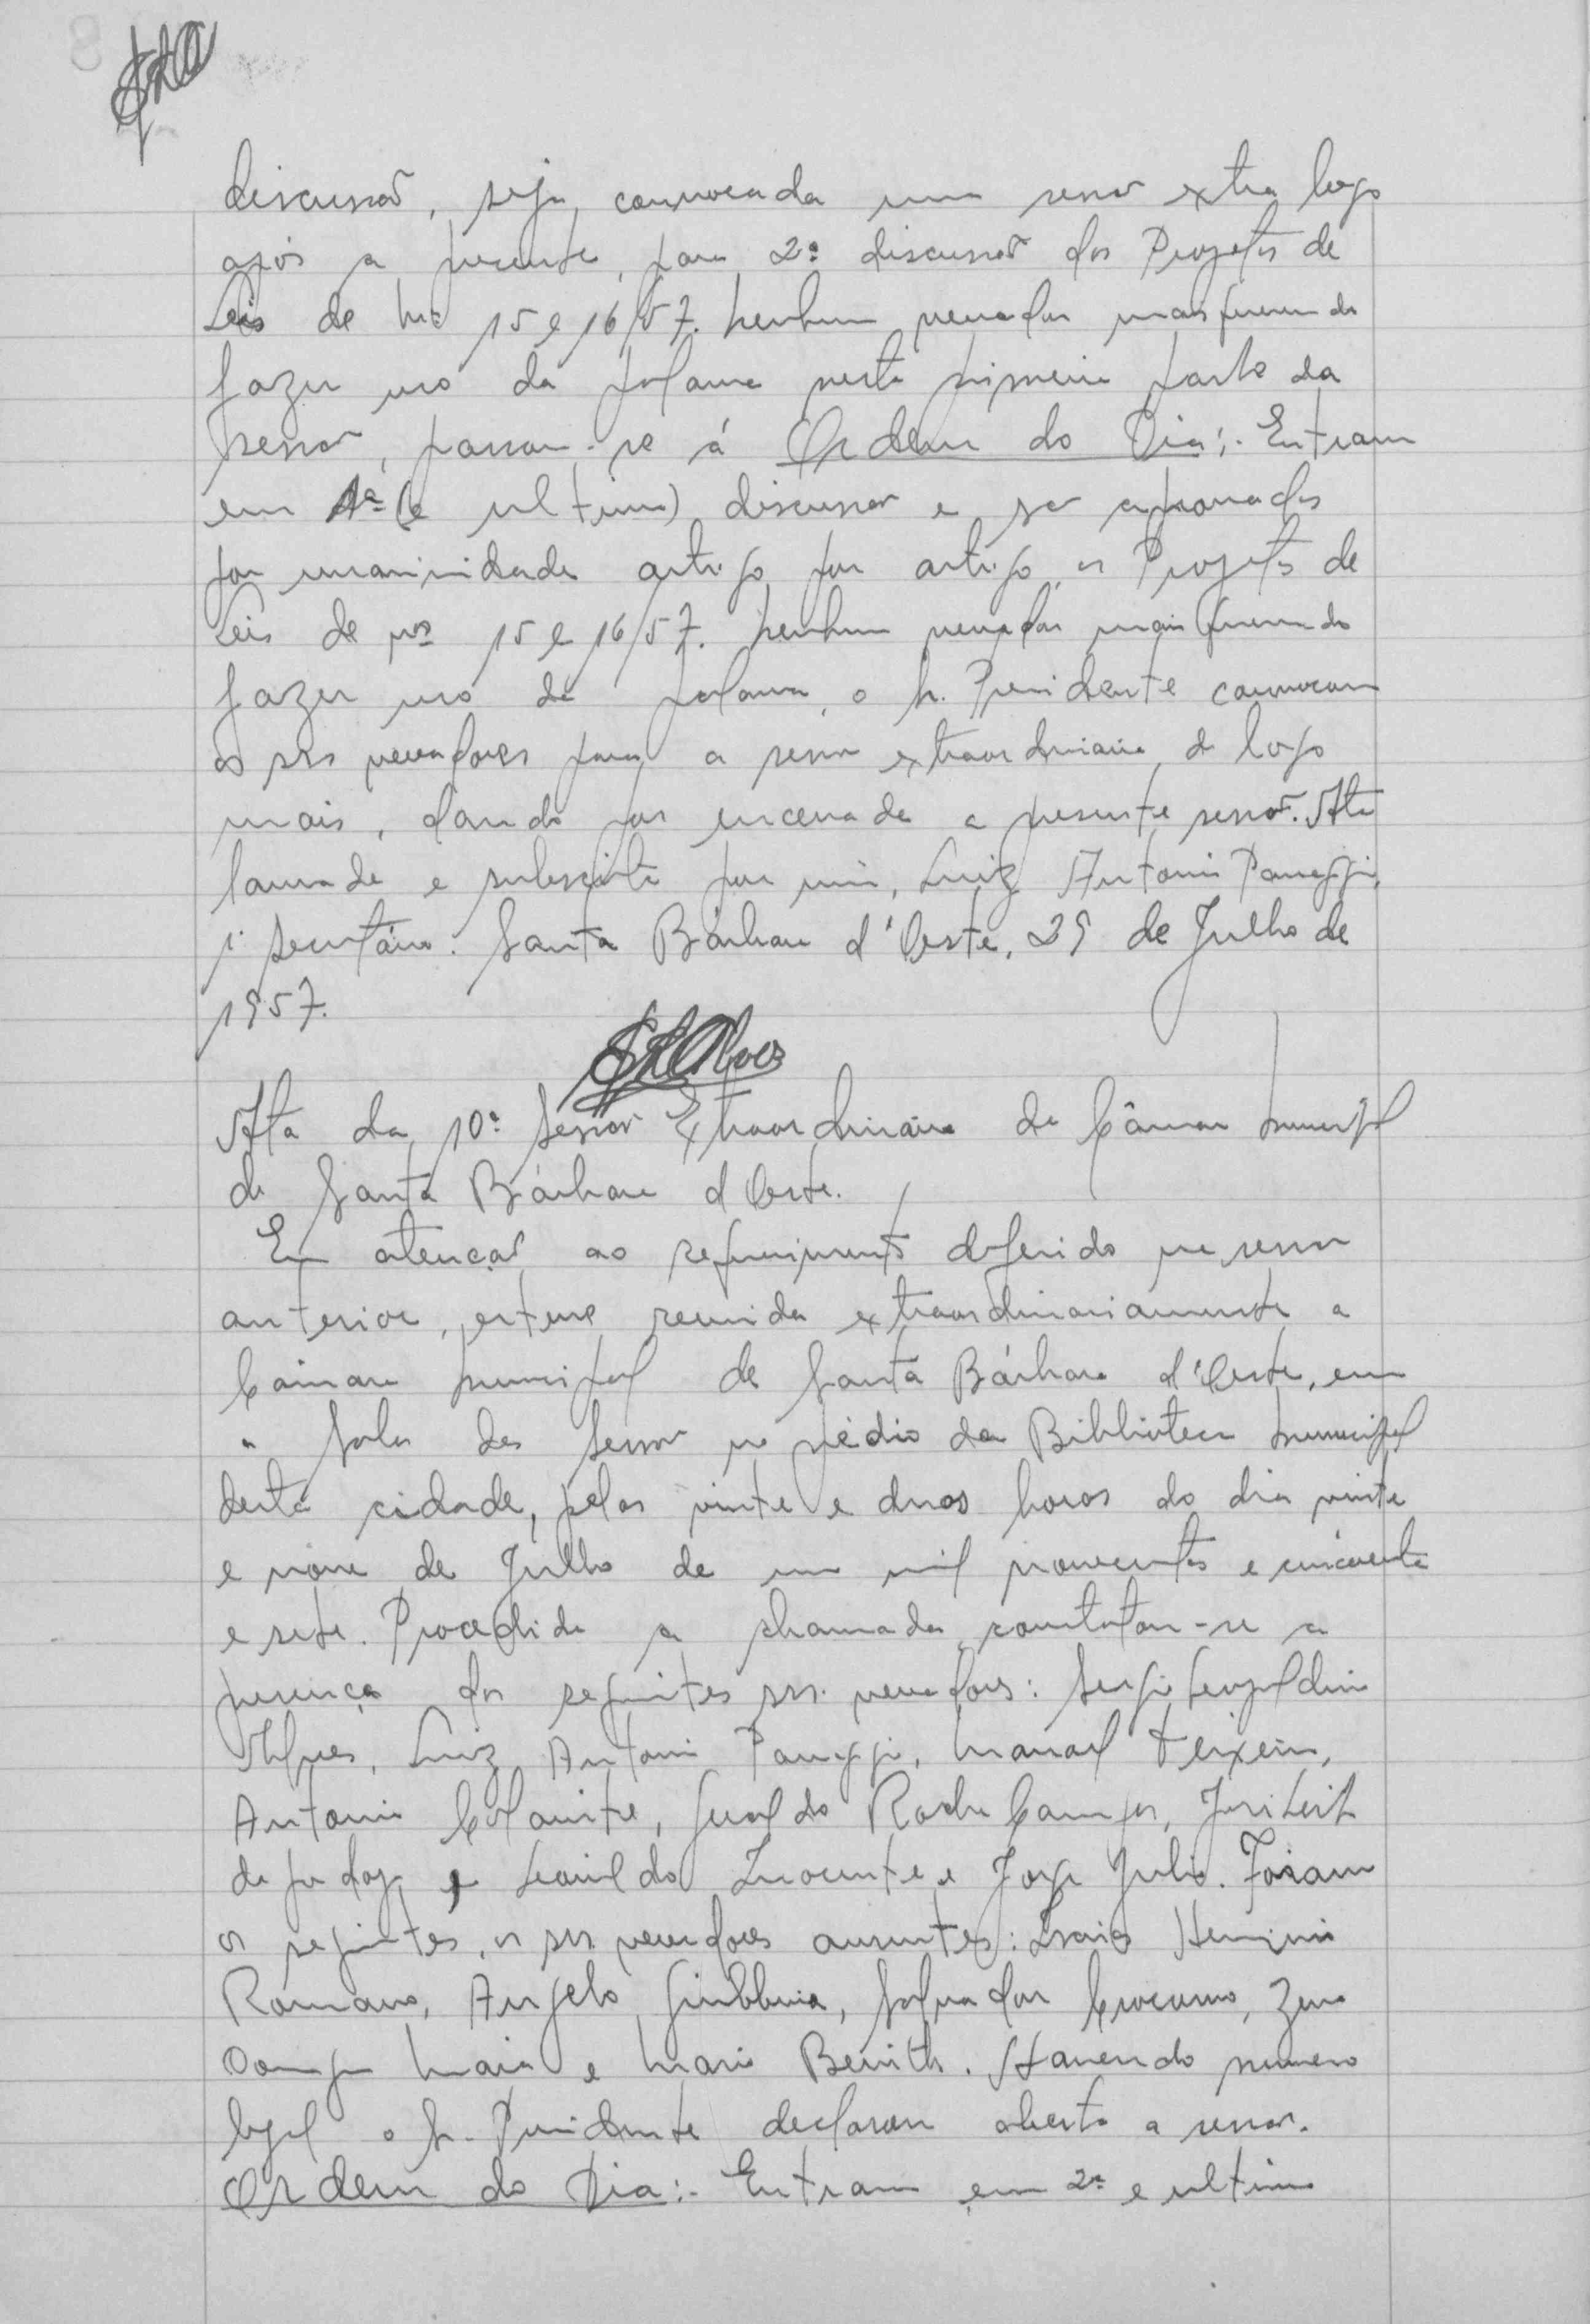 discussão, seja convocada uma sessão extra logo
após a presente, para 2ª discussão dos Projetos de
Leis de nº 15 e 16/57. Nenhum vereador mais querendo
fazer uso da palavra nesta primeira parte da
sessão, passou-se á Ordem do Dia:- Entram
em 1ª (e ultima) discussão e são aprovados
por unanimidade artigo por artigo, os Projetos de
Leis de nos 15 e 16/57. Nenhum vereador mais querendo
fazer uso da palavra, o Sr. Presidente convocou
os srs vereadores para a sessão extraordinaria, de logo
mais, dando por encerrada a presente sessão. Ata
lavrada e subscrita por mim, Luiz Antonio Panaggio,
1º Secretário. Santa Bárbara d'Oeste, 29 de Julho de
1957.
Ata da 10ª Sessão Extraordinária da Câmara Municipal
de Santa Bárbara d'Oeste.
Em atenção ao requerimento deferido na sessão
anterior, esteve reunida extraordinariamente a
Câmara Municipal de Santa Bárbara d'Oeste, em
a Sala das Sessão no prédio da Biblioteca Municipal
desta cidade, pelas vinte e duas horas do dia vinte
e nove de Julho de um mil novecentos e cincoenta
e sete. Procedida a chamada constatou-se a
presença dos seguintes srs. vereadores: Sergio Leopoldino
Alves, Luiz Antonio Panaggio, Manoel Teixeira,
Antonio Colavite, Geraldo Rocha Campos, José Leite
de Godoy e Leonildo Inocente e Jorge Julio. Foram
os seguintes, os srs. vereadores ausentes: Isaias Herminio
Romano, Angelo Giubbina, Salvador Crocomo, Zeno
Maia e Mario Benith. Havendo numero
legal o Sr. Presidente declarou aberta a sessão.
Ordem do Dia:- Entram em 2ª e ultima